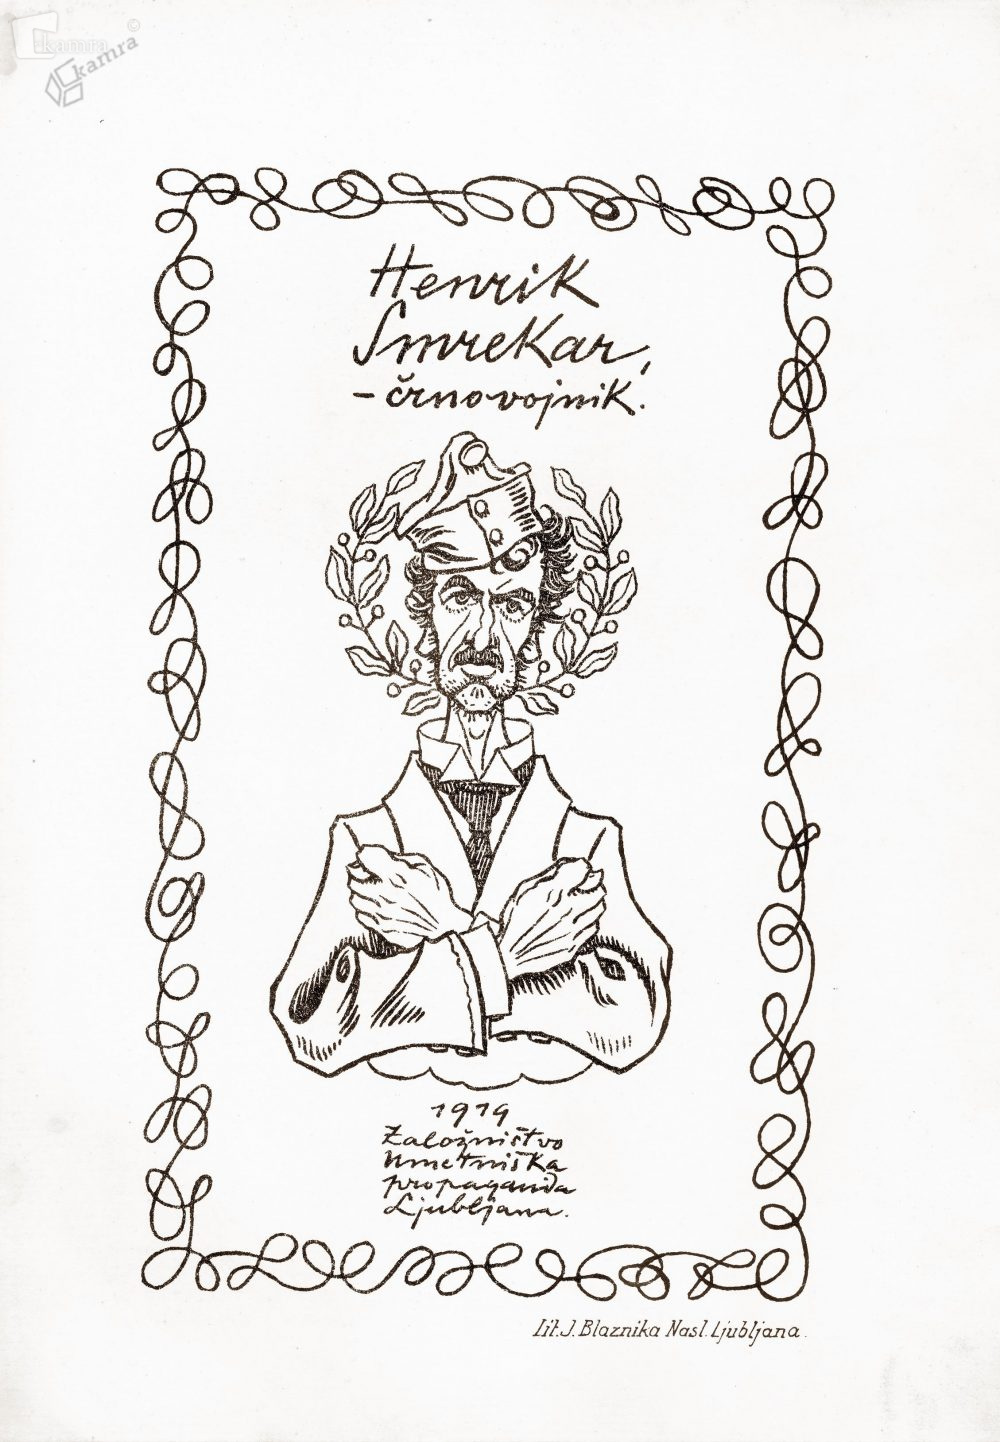 kamra
kamra ©
Henrik
Smrekar,
- črnovojnik.
1919
Založništvo
Umetniška
propaganda
Ljubljana.
Lit. J. Blaznika Nasl. Ljubljana.